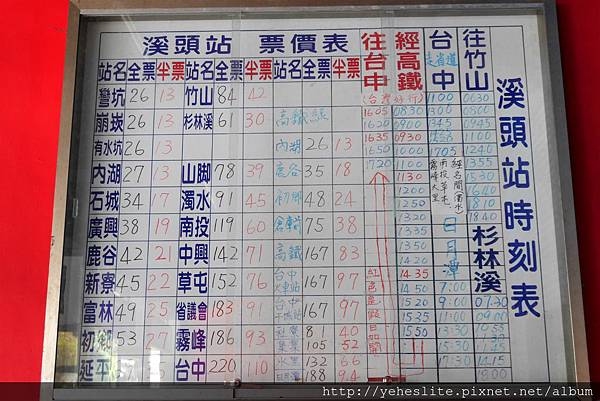 溪頭站 票價表
站名 全票 半票 站名 全票 半票 站名 全票 半票
彎坑 26 13 竹山 84 42
崩崁 26 13 杉林溪 61 30 高鐵線
有水坑 26 13 內湖 26 13
內湖 27 13 山脚 78 39 鹿谷 35 18
石城 34 17 濁水 91 45 初鄉 48 24
廣興 38 19 南投 119 60 75 38
鹿谷 42 21 中興 142 71 高鐵 167 83
新寮 45 22 草屯 152 76 台中 167 97
富林 49 25 省議會 183 91 台中 167 97
初鄉 53 27 霧峰 186 93 81 40
105 52
延平 35 台中 220 110 水里 132 66
188 94
往台中 經高鐵
(台灣好行)
1605 0830
1620 0900
1635 0930
1650 1000
1720 1100
1130
1200
1250
1320
1335
1350
1420
14:35
14:50
15:20
15:35
15:50
紅色是假日加開
台中
走省道
13:45
1705
經名間(濁水)
南投草屯
霧峰大里
日月潭
7:00
9:00
13:30
17:30
往竹山
0630
0800
0945
1100
1240
1355
1530
1640
1810
1840
杉林溪
07:30
09:00
14:15
19:00
溪頭站時刻表
http://yeheslite.pixnet.net/album